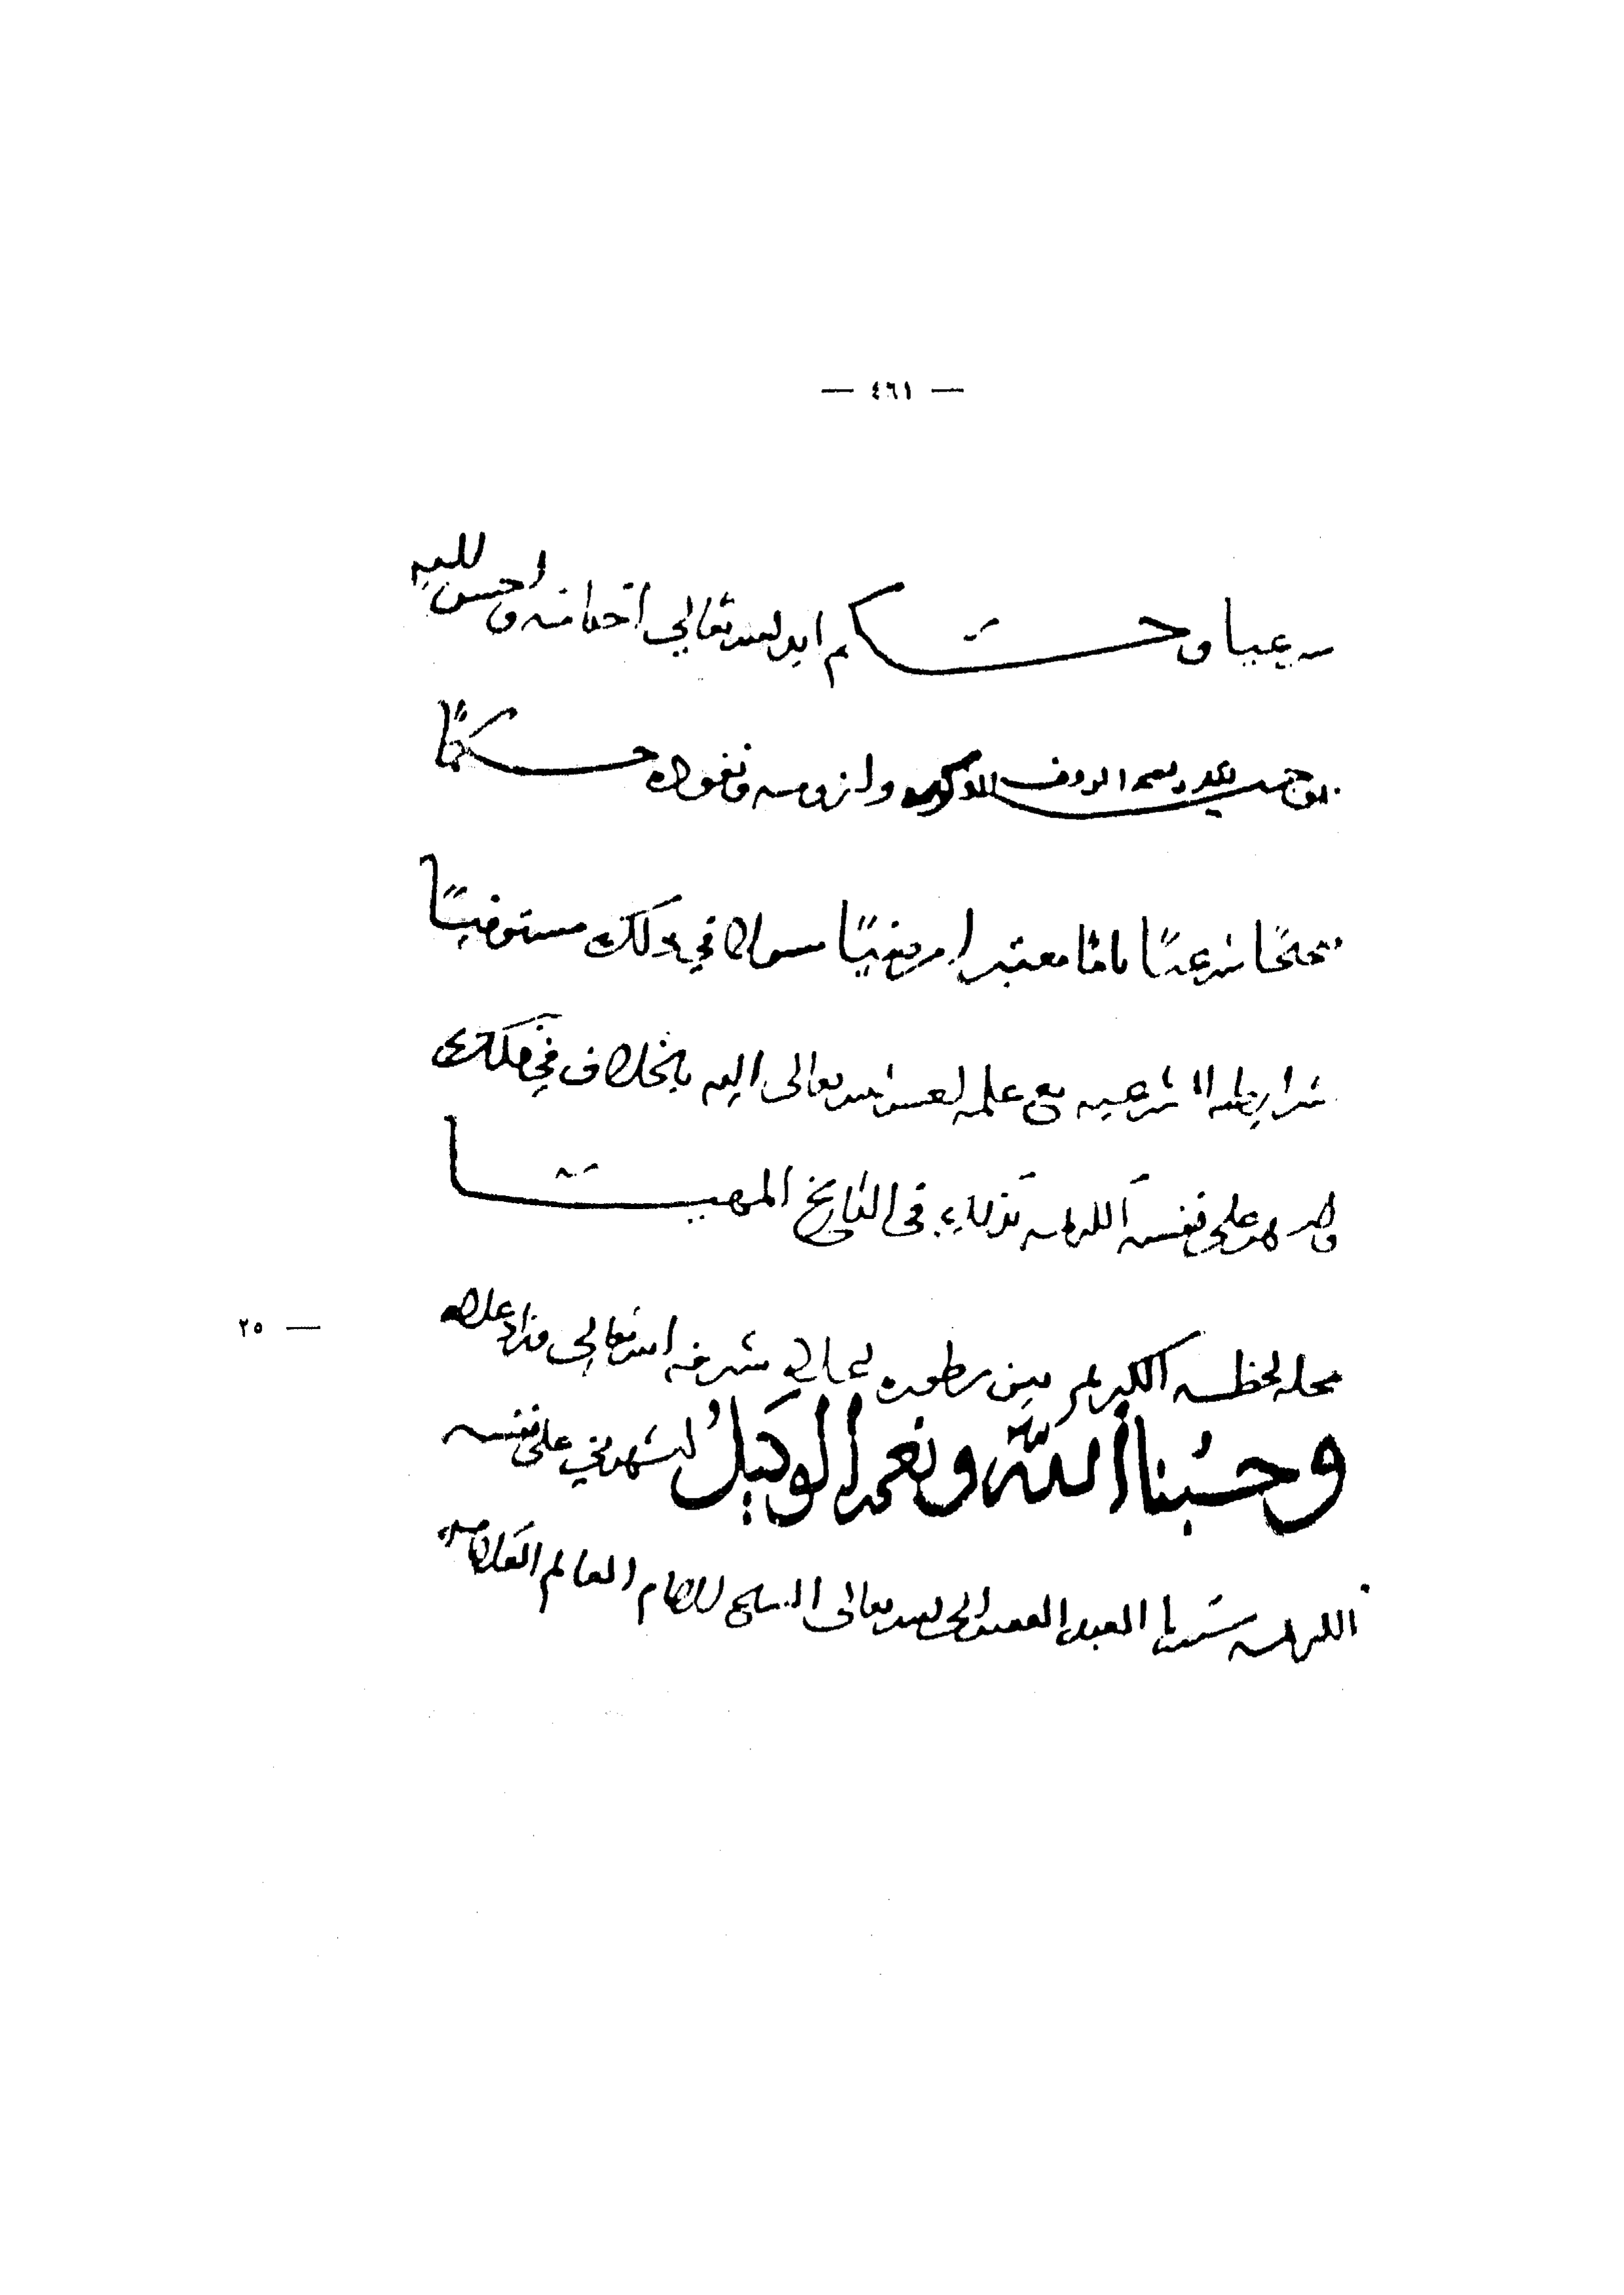 — ٤٦١ —
شرعيا وحكم ايد الله تعالى احكامه واحسن اليه
بموجب ذلك وبصحة الوقف المذكور ولزومه ونفوذه حكما
صحيحا شرعيا تاما معتبرا مرضيا مسولا في ذلك مستوفيا
شرايطه الشرعيه مع علمه احسن الله تعالى اليه بالخلاف في ذلك
واشهد على نفسه الكريمه بذلك في التاريخ المعين
محله بخطه الكريم بين سطوره باعاليه شرفه الله تعالى وزاد علاه
٢٥ —
وحسبنا الله ونعم الوكيل اشهدني على نفسه
الكريمه سيدنا العبد الفقير الى الله تعالى الشيخ الامام العالم العلامه